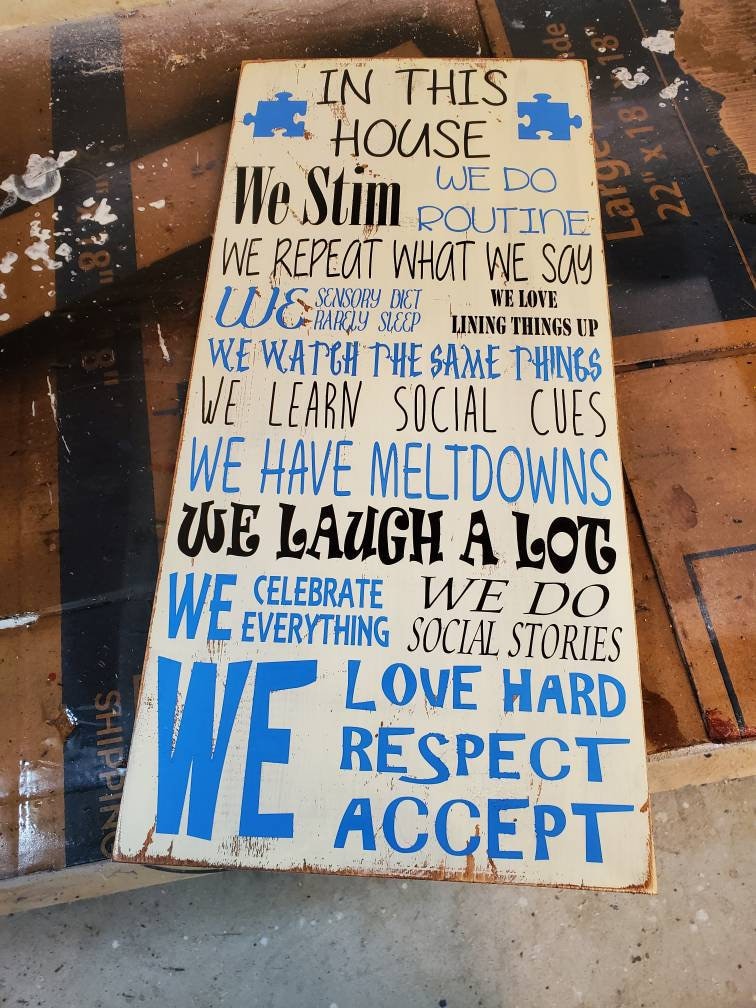 IN THIS
HOUSE
We Stim
WE DO
ROUTINE
WE REPEAT WHAT WE SAY
WE SENSORY DIET
RARELY SLEEP
WE LOVE
LINING THINGS UP
WE WATCH THE SAME THINGS
WE LEARN SOCIAL CUES
WE HAVE MELTDOWNS
WE LAUGH A LOT
WE CELEBRATE
EVERYTHING
WE DO
SOCIAL STORIES
WE LOVE HARD
RESPECT
ACCEPT
Large
22" x 18" x 18
SHIPPING